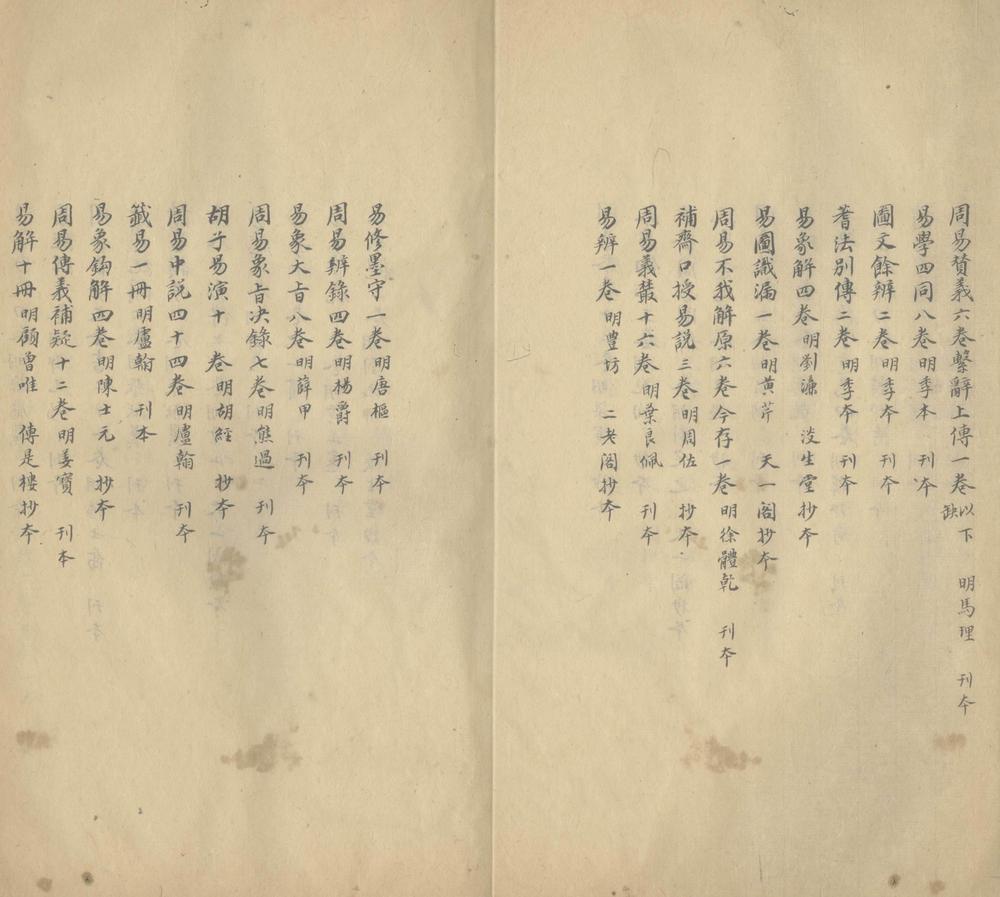 周易贊義六卷繫辭上傳一卷以下缺 明馬理 刊本
易學四同八卷明季本 刊本
圖文餘辨二卷明季本 刊本
蓍法別傳二卷明季本 刊本
易象解四卷明劉濂 淡生堂抄本
易圖識漏一卷明黄芹 天一閣抄本
周易不我解原六卷今存一卷 明徐體乾 刊本
補齋口授易説三卷明周佐 抄本
周易義叢十六卷明葉良佩 刊本
易辨一卷明豊坊 二老閣抄本
易修墨守一卷明唐樞 刊本
周易辨錄四卷明楊爵 刊本
易象大旨八卷明薛甲 刊本
周易象旨决錄七卷明熊過 刊本
胡子易演十 卷明胡經 抄本
周易中説四十四卷明盧翰 刊本
籖易一冊明盧翰 刊本
易象鈎解四卷明陳士元 抄本
周易傳義補疑十二卷明姜寳 刊本
易解十冊明顧曾唯 傳是樓抄本